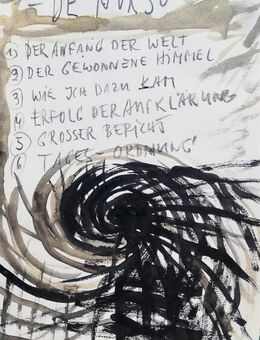 ① DER ANFANG DER WELT
② DER GEWONNENE HIMMEL
③ WIE ICH DAZU KAM
④ ERFOLG DER AUFKLÄRUNG
⑤ GROSSER BERICHT
⑥ TAGESORDNUNG!